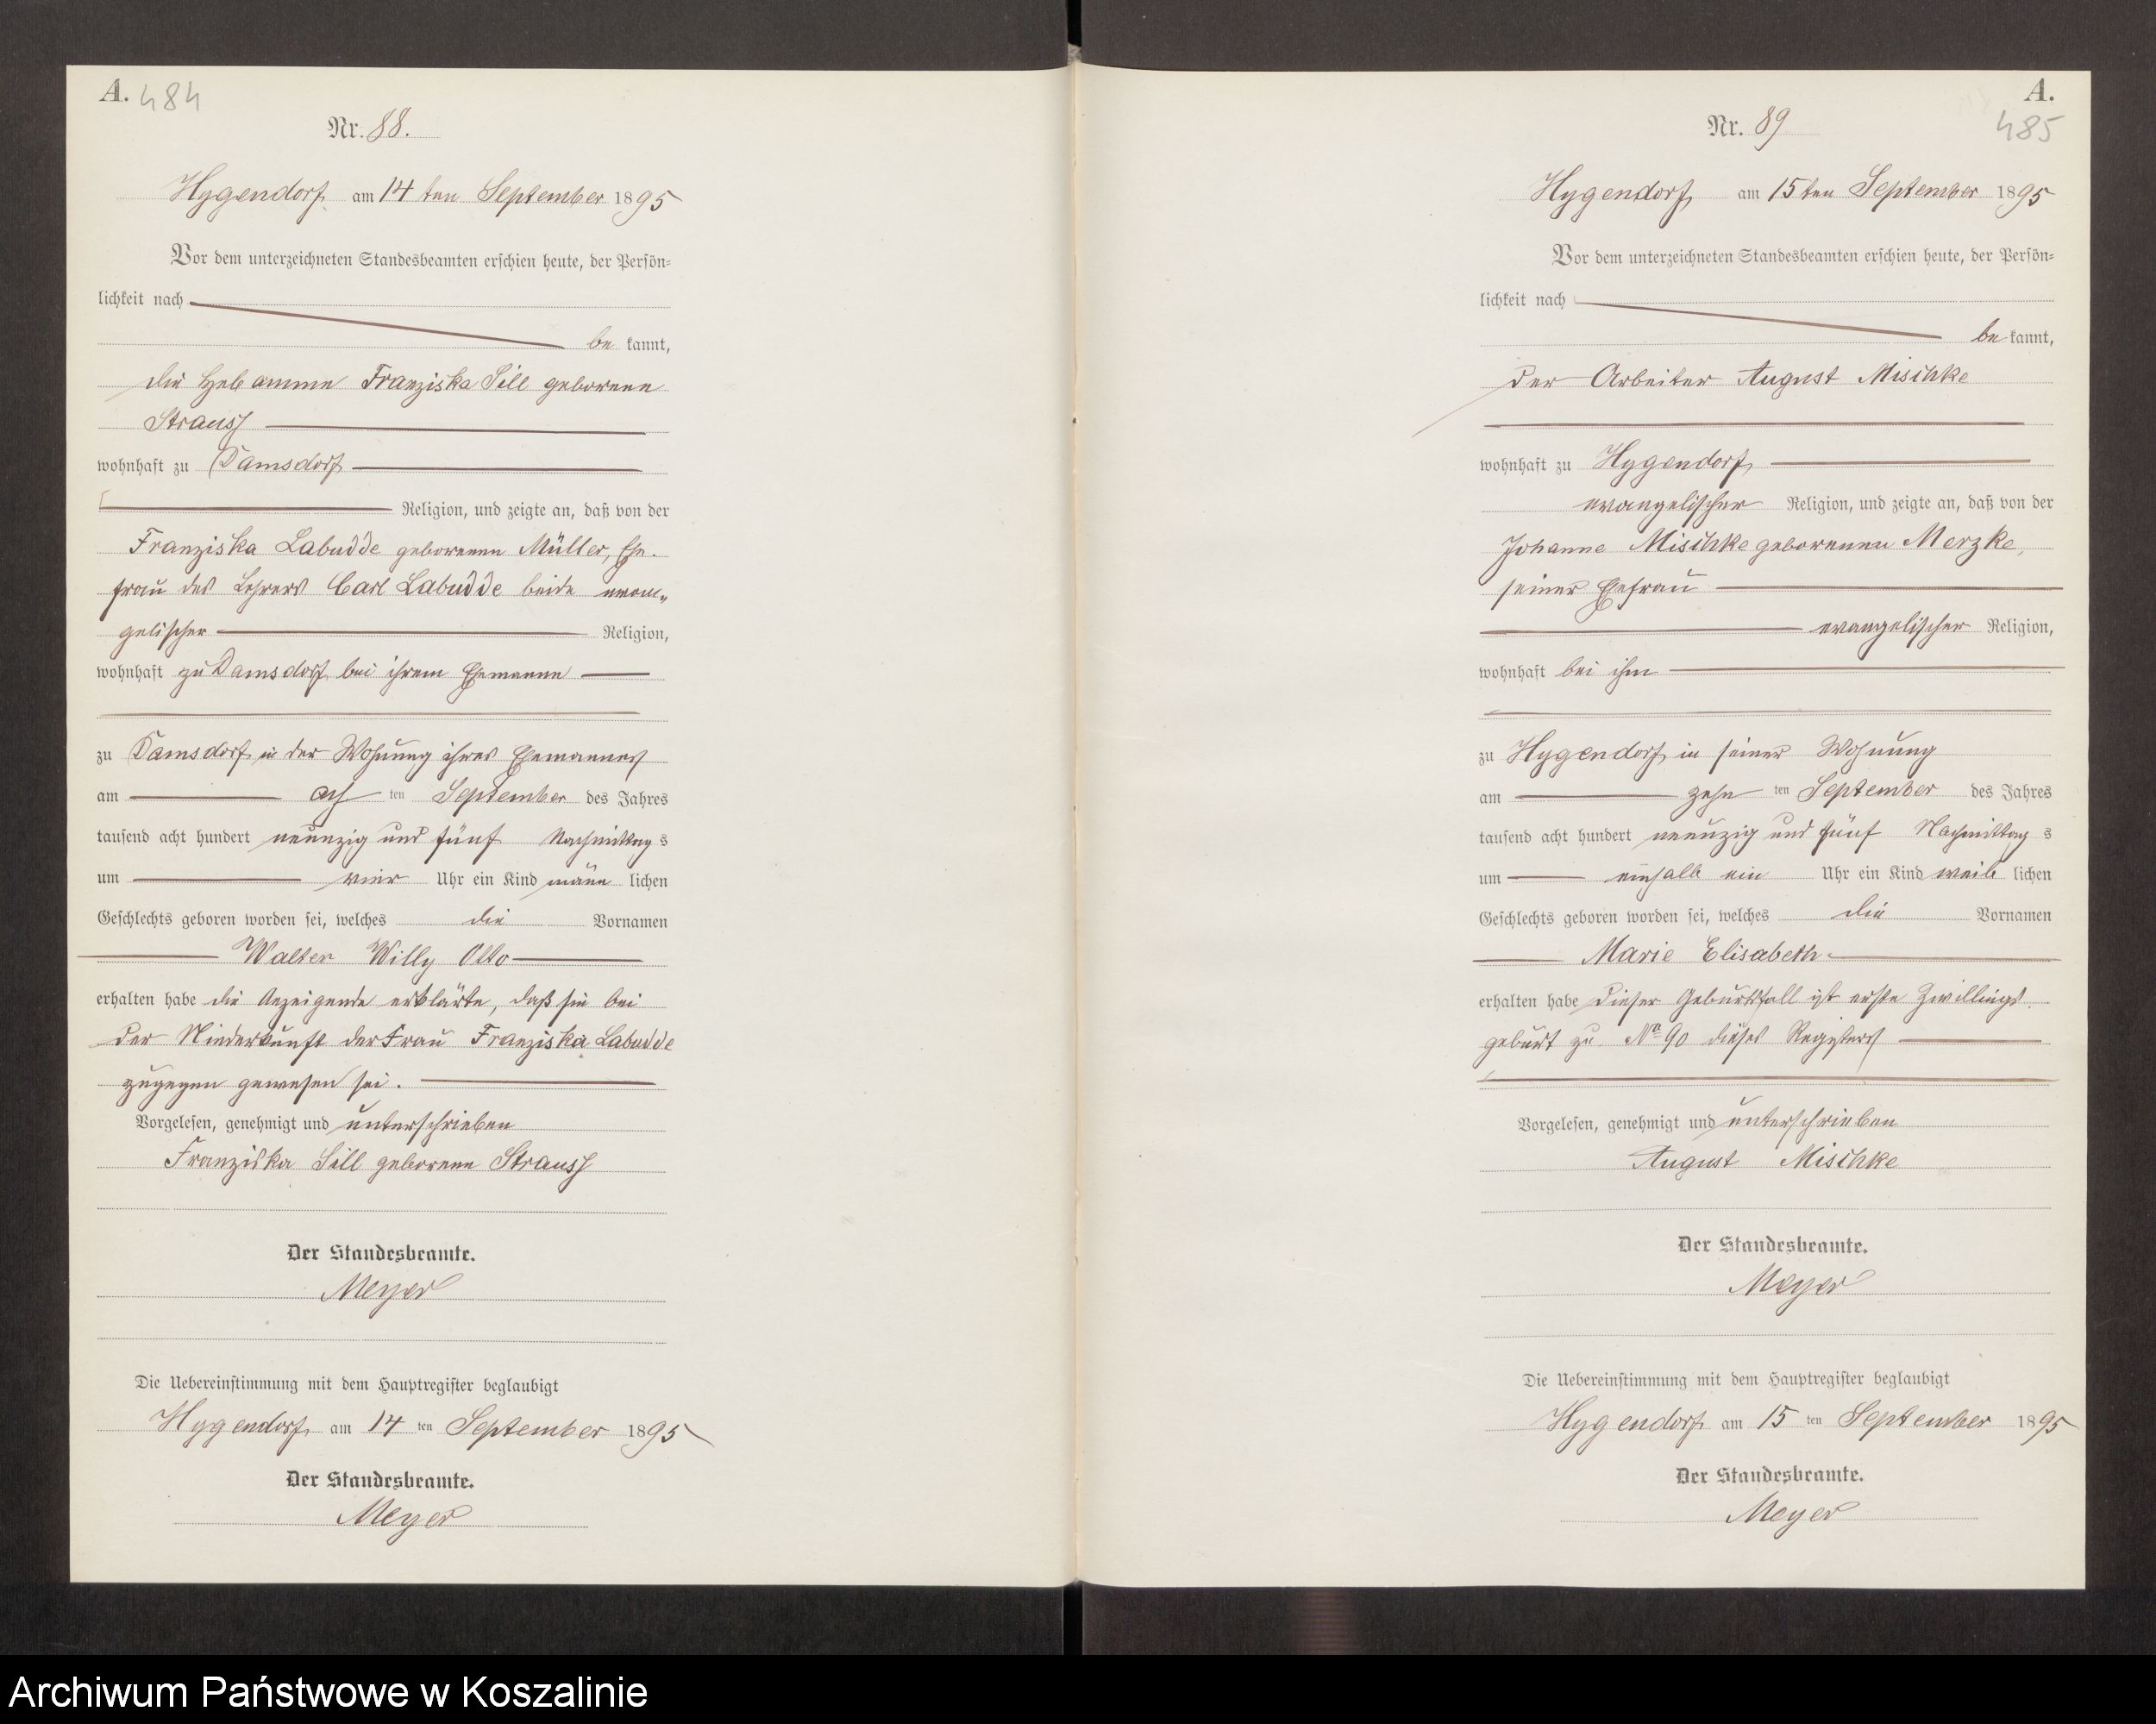 A. 484
Nr. 88.
Hygendorf am 14ten September 1895
Vor dem unterzeichneten Standesbeamten erschien heute, der Persön-
lichkeit nach
bekannt,
die Hebamme Franziska Sill geborene
Strauss
wohnhaft zu Damsdorf
Religion, und zeigte an, daß von der
Franziska Labudde geborenen Müller, Ehe-
frau des Lehrers Carl Labudde beide evan-
gelischer Religion,
wohnhaft zu Damsdorf bei ihrem Ehemanne
zu Damsdorf in der Wohnung ihres Ehemannes
am ach ten September des Jahres
tausend acht hundert neunzig und fünf Nachmittags
um vier Uhr ein Kind männlichen
Geschlechts geboren worden sei, welches die Vornamen
Walter Willy Otto
erhalten habe die Anzeigende erklärte, daß sie bei
der Niederkunft der Frau Franziska Labudde
zugegen gewesen sei.
Vorgelesen, genehmigt und unterschrieben
Franziska Sill geborene Strauss
Der Standesbeamte.
Meyer
Die Uebereinstimmung mit dem Hauptregister beglaubigt
Hygendorf am 14 ten September 1895
Der Standesbeamte.
Meyer
A.
485
Nr. 89
Hygendorf am 15ten September 1895
Vor dem unterzeichneten Standesbeamten erschien heute, der Persön-
lichkeit nach
bekannt,
der Arbeiter August Mischke
wohnhaft zu Hygendorf
evangelischer Religion, und zeigte an, daß von der
Johanne Mischke geborenen Merzke,
seiner Ehefrau
evangelischer Religion,
wohnhaft bei ihm
zu Hygendorf in seiner Wohnung
am zehn ten September des Jahres
tausend acht hundert neunzig und fünf Nachmittags
um einhalb ein Uhr ein Kind weiblichen
Geschlechts geboren worden sei, welches die Vornamen
Marie Elisabeth
erhalten habe Dieser Geburtsfall ist erste Zwillings-
geburt zu No 90 dieses Registers
Vorgelesen, genehmigt und unterschrieben
August Mischke
Der Standesbeamte.
Meyer
Die Uebereinstimmung mit dem Hauptregister beglaubigt
Hygendorf am 15 ten September 1895
Der Standesbeamte.
Meyer
Archiwum Państwowe w Koszalinie